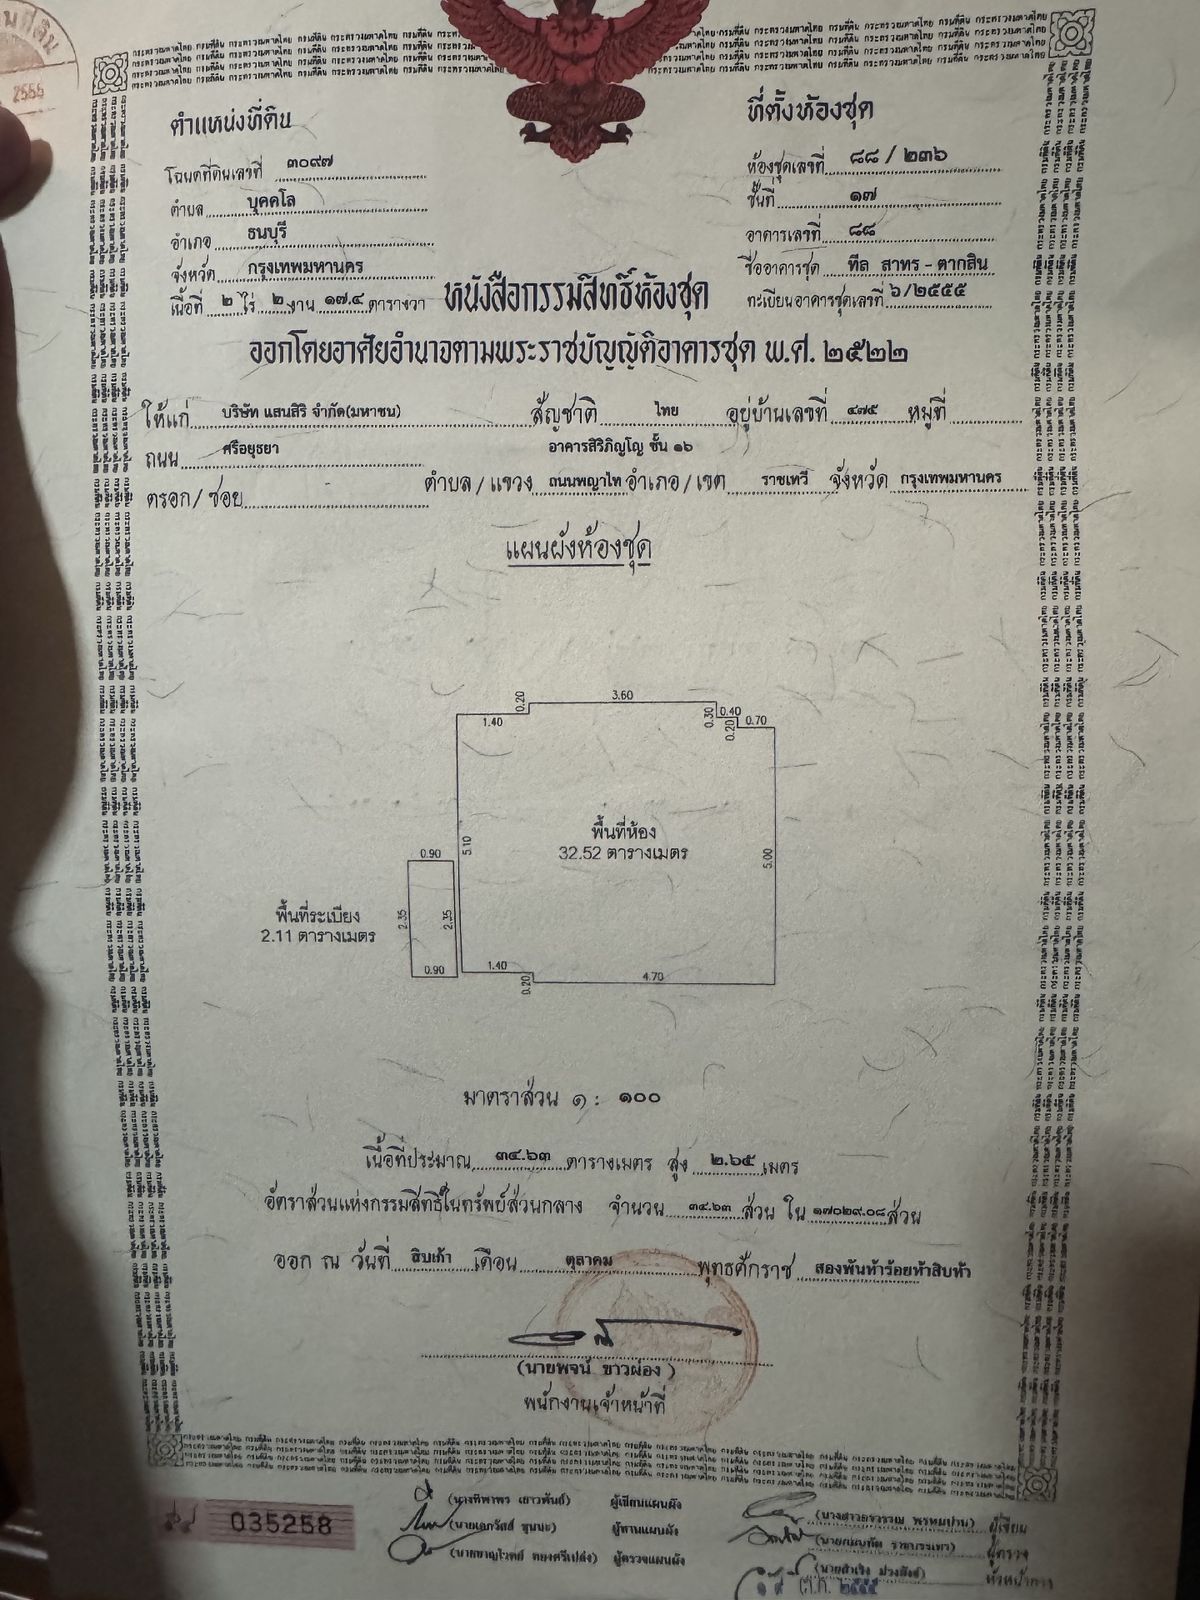 ที่ดิน
2555
กระทรวงมหาดไทย กรมที่ดิน กระทรวงมหาดไทย กรมที่ดิน
ตำแหน่งที่ดิน
โฉนดที่ดินเลขที่ ๓๐๙๗
ตำบล บุคคโล
อำเภอ ธนบุรี
จังหวัด กรุงเทพมหานคร
เนื้อที่ ๒ ไร่ ๒ งาน ๑๗.๔ ตารางวา
ที่ตั้งห้องชุด
ห้องชุดเลขที่ ๘๘/๒๓๖
ชั้นที่ ๑๗
อาคารเลขที่ ๘๘
ชื่ออาคารชุด ทีล สาทร - ตากสิน
ทะเบียนอาคารชุดเลขที่ ๖/๒๕๕๕
หนังสือกรรมสิทธิ์ห้องชุด
ออกโดยอาศัยอำนาจตามพระราชบัญญัติอาคารชุด พ.ศ. ๒๕๒๒
ให้แก่ บริษัท แสนสิริ จำกัด(มหาชน) สัญชาติ ไทย อยู่บ้านเลขที่ ๔๗๕ หมู่ที่
ถนน ศรีอยุธยา อาคารสิริภิญโญ ชั้น ๑๖
ตรอก/ซอย ตำบล/แขวง ถนนพญาไท อำเภอ/เขต ราชเทวี จังหวัด กรุงเทพมหานคร
แผนผังห้องชุด
0.20 3.60
1.40 0.30 0.40
0.20 0.70
พื้นที่ห้อง
32.52 ตารางเมตร
5.10 5.00
0.90
2.35 2.35
พื้นที่ระเบียง
2.11 ตารางเมตร
0.90 1.40
0.20 4.70
มาตราส่วน ๑ : ๑๐๐
เนื้อที่ประมาณ ๓๔.๖๓ ตารางเมตร สูง ๒.๖๕ เมตร
อัตราส่วนแห่งกรรมสิทธิ์ในทรัพย์ส่วนกลาง จำนวน ๓๔.๖๓ ส่วน ใน ๑๗๐๒๙.๐๘ ส่วน
ออก ณ วันที่ สิบเก้า เดือน ตุลาคม พุทธศักราช สองพันห้าร้อยห้าสิบห้า
(นายพจน์ ขาวผ่อง)
พนักงานเจ้าหน้าที่
035258
ผู้เขียนแผนผัง
ผู้ทานแผนผัง
ผู้ตรวจแผนผัง
ผู้เขียน
ผู้ตรวจ
หัวหน้าการ
๑๙ ต.ค. ๒๕๕๕